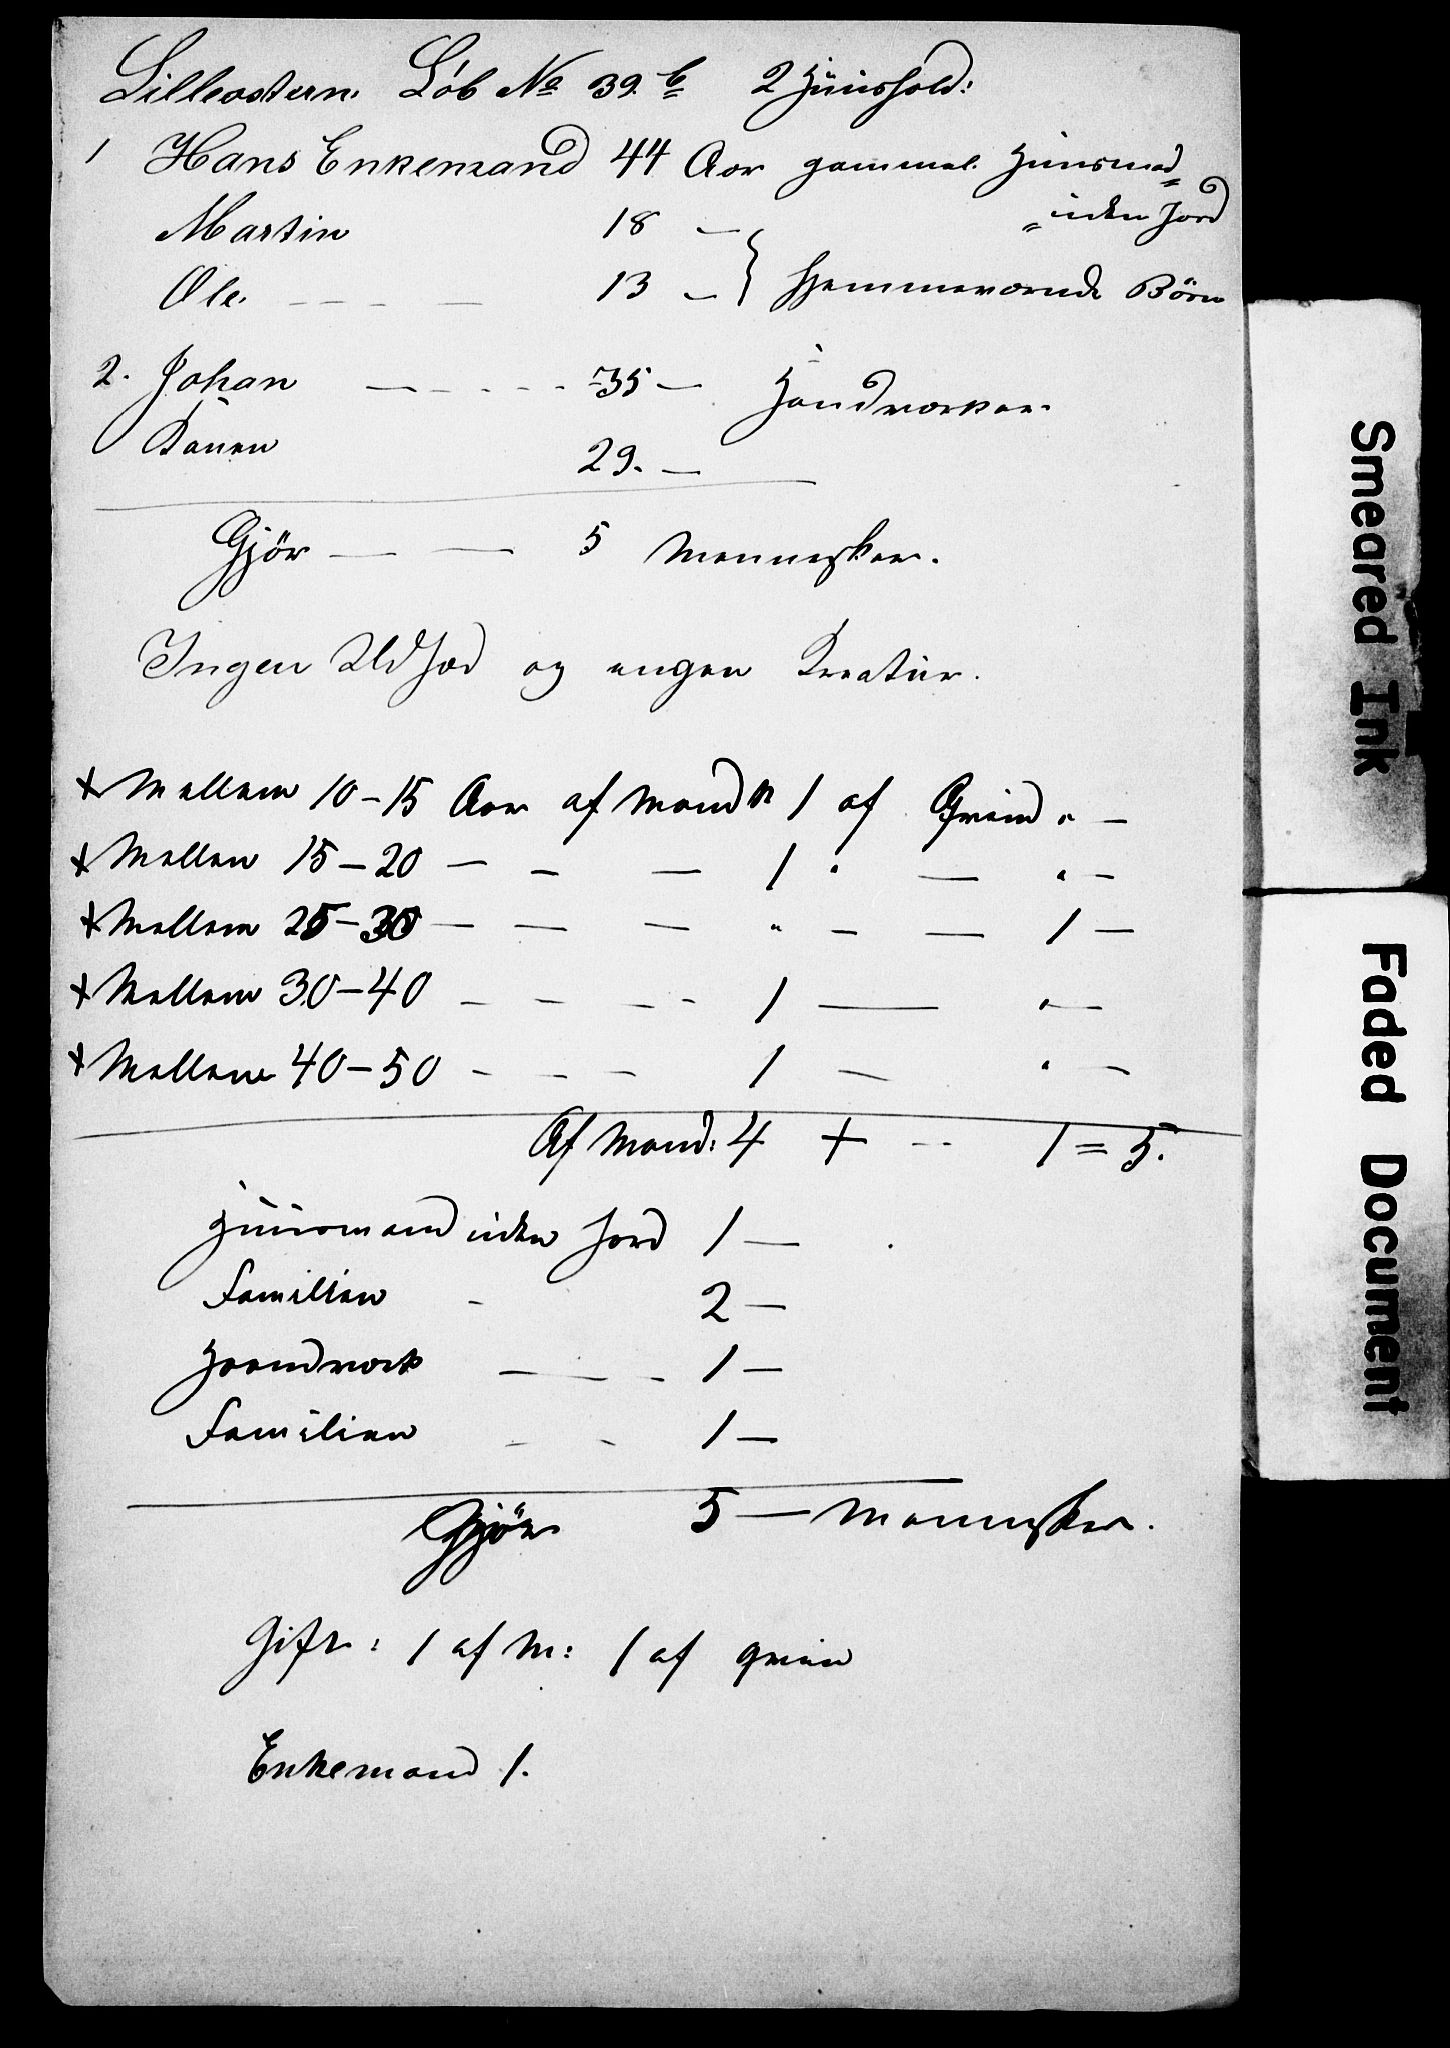 Lilleøstern. Löb No 39. b 2 Huushold:
1 Hans Enkemand 44 Aar gammel. Huusmad
uden Jord
Martin 18 —
Ole. - - - — 13 — } Hjemmeværende Börn
2. Johan — - - - - 35 — Handværker.
Konen 29. —
Gjör — — 5 Mennesker.
Ingen Udsæd og ingen Kreatur.
+ Mellem 10-15 Aar af Mandk 1 af Qvind " —
+ Mellem 15-20 — — — 1 " — " —
+ Mellem 25-30 — — — " — — 1 —
+ Mellem 30-40 - - - - 1 — " —
+ Mellem 40-50 - - - 1 — " —
Af Mand: 4 + - - 1 = 5.
Huusmand uden Jord 1 —
Familien - 2 —
Haandværk — - - 1 —
Familien - - 1 —
Gjör 5 — Mennesker.
Gift: 1 af M: 1 af qvin
Enkemand 1.
Smeared Ink
Faded Document